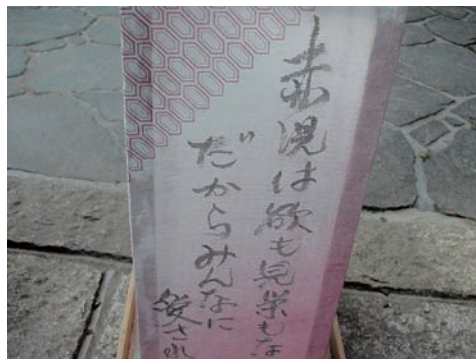 赤児は欲も見栄もな
だからみんなに
愛され